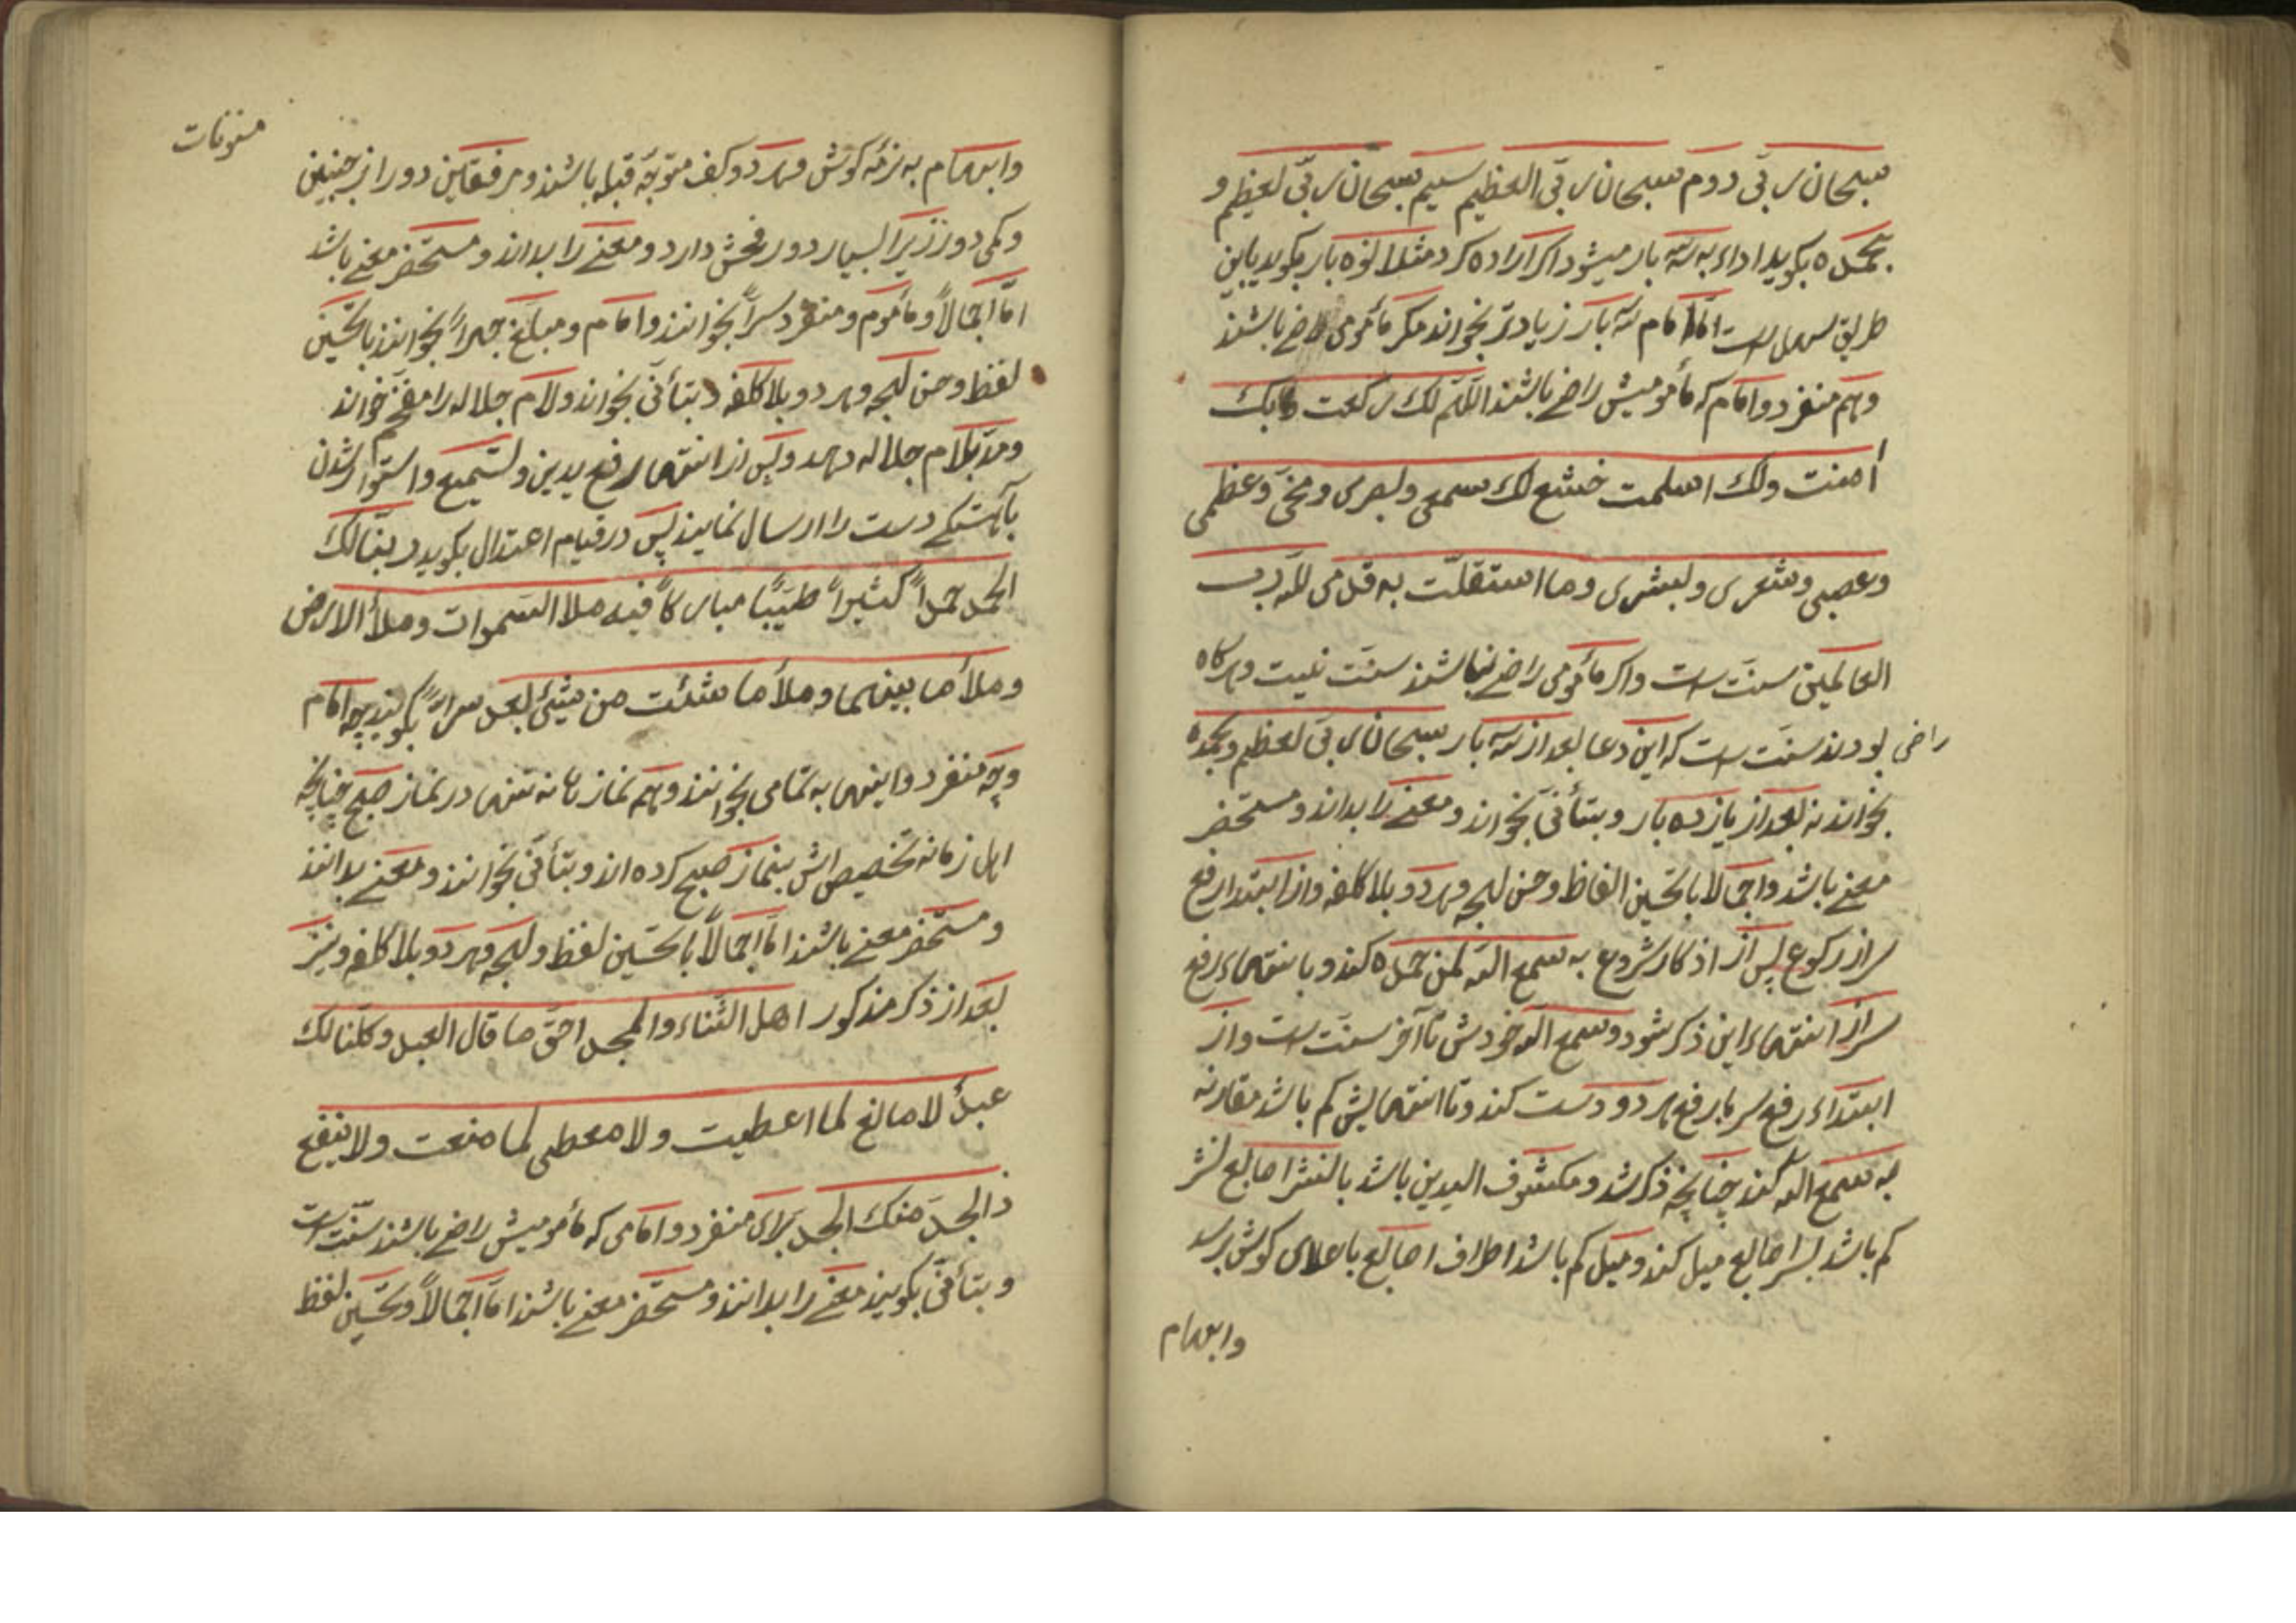 سبحان ربی دوم سبحان ربی العظیم سیم سبحان ربی العظیم و
بحمده بکوید اداء به سه بار میشود اکر اراده کرد مثلا نوه بار بکوید باین
طریق سهل است اما امام سه بار زیادتر نخواند مکر مأمومی راضی باشند
وهم منفرد و امام که مأمومیش راضی باشند اللهم لک رکعت وبک
أمنت ولک اسلمت خشع لک سمعی وبصری ومخی وعظمی
وعصبی وشعری وبشری وما استقلت به قدمی لله رب
العالمین سنت است واکر مأمومی راضی نباشند سنت نیست وهرکاه
راضی بودند سنت است که این دعا بعد از سه بار سبحان ربی العظیم وبحمده
بخواند نه بعد از یازده بار وبتأنی بخواند ومعنی را بداند ومستحضر
معنی باشد واجمالا با تحسین الفاظ وحسن لهجه وهردو بلا کلفه واز ابتدا رفع
سر از رکوع پس از اذکار شروع به سمع الله لمن حمده کند وبا نتهاء رفع
سر از انتهاء این ذکر شود وسمع الله خودش تا آخر سنت است واز
ابتداء رفع سر با رفع هردو دست کند وتا انتهایش کم باشد مقارنه
به سمع الله کند چنانچه ذکر شد ومکشوف الیدین باشد با نشر اصابع نشر
کم باشد بسر اصابع میل کند ومیل کم باشد اطراف اصابع با علای کوش برسد
وابهام
مسنونات
وابهام به نرمه کوش وهردو کف متوجه قبله باشند ومرفقین دور از جنبین
وکمی دور زیرا بسیار دور فحش دارد ومعنی را بداند ومستحضر معنی باشد
اما اجمالاً ومأموم ومنفرد سراً بخوانند وامام ومبلغ جهراً بخوانند با تحسین
لفظ وحسن لهجه وهردو بلا کلفه وبتأنی بخواند ولام جلاله را مفخم خواند
ومد بلام جلاله دهد وپس از انتهای رفع یدین وتسمیع واستوار شدن
بآهستکی دست را ارسال نمایند پس در قیام اعتدال بکوید ربنا لک
الحمد حمداً کثیراً طیباً مبارکاً فیه ملأ السموات وملأ الارض
وملأ ما بینهما وملأ ما شئت من شیئ بعد سراً بکویند چه امام
وچه منفرد واینها به تمامی بخوانند وهم نمازها نه تنها در نماز صبح چنانچه
اهل زمانه تخصیص اش بنماز صبح کرده اند وبتأنی بخوانند ومعنی بدانند
ومستحضر معنی باشند اما اجمالاً با تحسین لفظ ولهجه وهردو بلا کلفه ونیز
بعد از ذکر مذکور اهل الثناء والمجد احق ما قال العبد وکلنا لک
عبدٌ لا مانع لما اعطیت ولا معطی لما منعت ولا ینفع
ذالجد منک الجد برای منفرد وامامی که مأمومیش راضی باشند سنت است
وبتأنی بکویند معنی را بدانند ومستحضر معنی باشند اما اجمالاً وتحسین لفظ